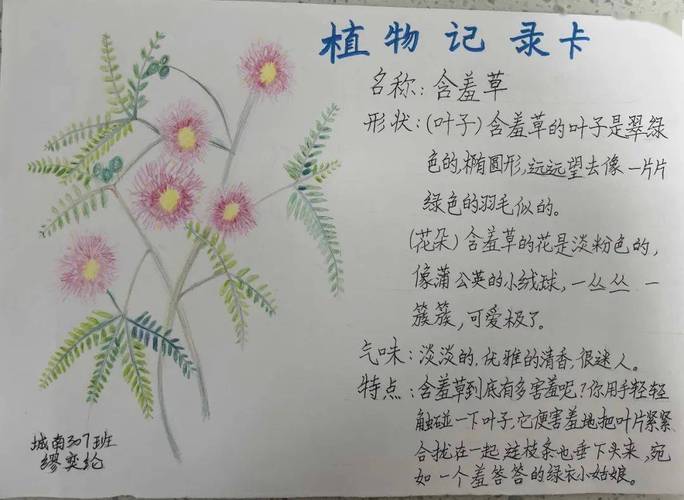 植物记录卡
名称：含羞草
形状：(叶子)含羞草的叶子是翠绿
色的，椭圆形，远远望去像一片片
绿色的羽毛似的。
(花朵)含羞草的花是淡粉色的，
像蒲公英的小绒球，一丛丛一
簇簇，可爱极了。
气味：淡淡的，优雅的清香，很迷人。
特点：含羞草到底有多害羞呢？你用手轻轻
触碰一下叶子，它便害羞地把叶片紧紧
合拢在一起，连枝条也垂下头来，宛
如一个羞答答的绿衣小姑娘。
城南307班
缪奕纶